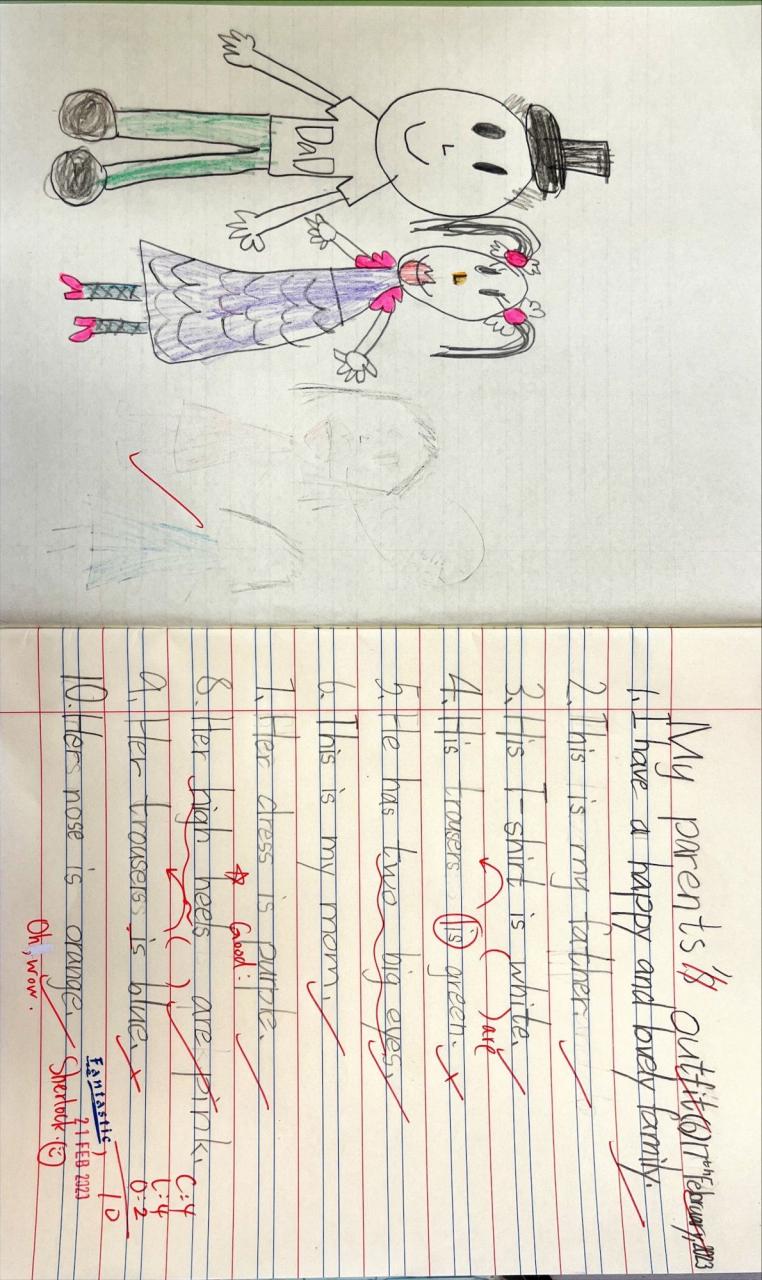 DaD
My parents's outfit (6) 17th February, 2023
1. I have a happy and lovely family.
2. This is my father.
3. His T-shirt is white.
( ) are
4. His trousers is green.
5. He has two big eyes.
6. This is my mom.
7. Her dress is purple.
☆ Good:
8. Her high heels are pink.
( )
9. Her trousers is blue.
10. Hers nose is orange.
Oh, wow.
Sherlock.
Fantastic
21 FEB 2023
C:4
L:4
O:2
10